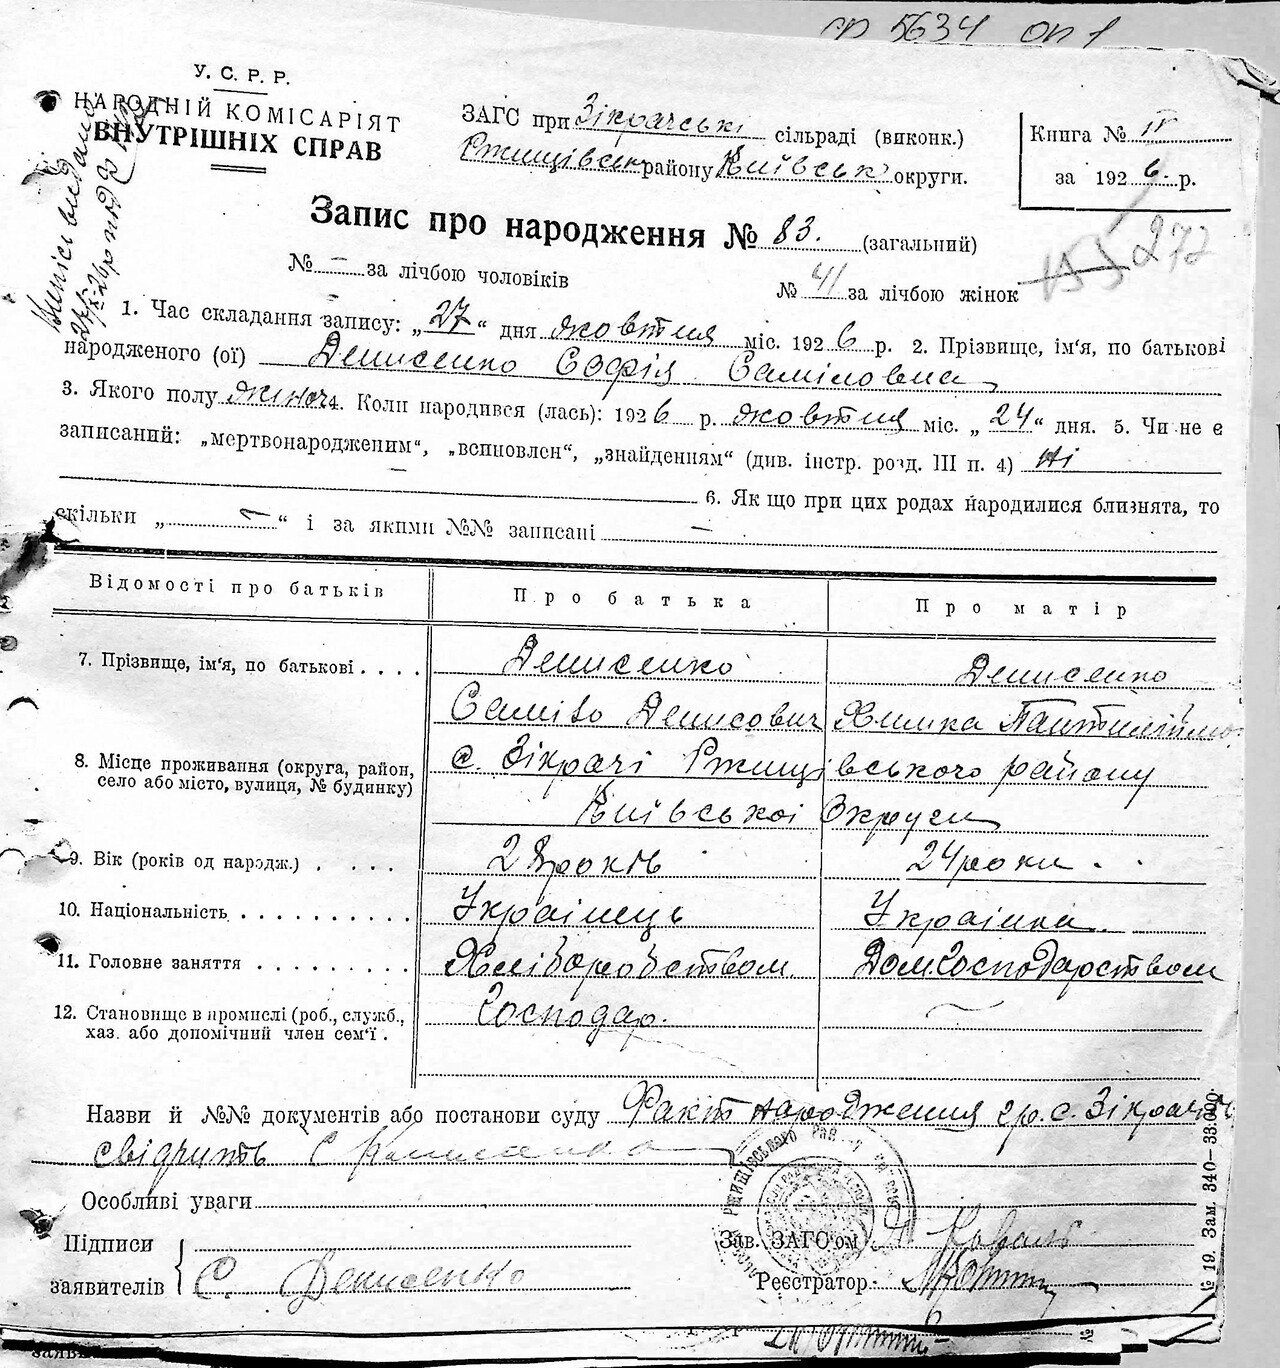 ф 5634 оп 1
У. С. Р. Р.
НАРОДНІЙ КОМІСАРІЯТ
ВНУТРІШНІХ СПРАВ
ЗАГС при Зікрачські сільраді (виконк.)
Ржищівськ району Київськ округи.
Книга № IV
за 1926 р.
Запис про народження № 83. (загальний)
155 272
№ – за лічбою чоловіків № 41 за лічбою жінок
1. Час складання запису: „27“ дня жовтня міс. 1926 р. 2. Прізвище, ім‘я, по батькові
народженого (ої) Денисенко Софія Самiловна
3. Якого полу жіноч 4. Коли народився (лась): 1926 р. жовтня міс. „24“ дня. 5. Чи не є
записаний: „мертвонародженим“, „всиновлєн“, „знайденням“ (див. інстр. розд. III п. 4) ні
6. Як що при цих родах народилися близнята, то
скільки „ – “ і за якими №№ записані –
Відомості про батьків Про батька Про матір
7. Прізвище, ім‘я, по батькові . . . . Денисенко Денисенко
Денисович Химка
8. Місце проживання (округа, район, село або місто, вулиця, № будинку) с. Зікрачі Ржищівського району
Київської Округи
9. Вік (років од народж.) . . . . 28 років 24 роки
10. Національність . . . . . . . . . . Українець Українка
11. Головне заняття . . . . . . . . . Хліборобством Дом. Господарством
12. Становище в промислі (роб., служб., хаз. або допомічний член сем‘ї . Господар. –
Назви й №№ документів або постанови суду Факт народження гр. с. Зікрачів
свідчить С
Особливі уваги
Підписи
заявителів С. Денисенко
Зав. ЗАГС‘ом Коваль
Реєстратор
№ 19. Зам. 340–33.000.
заяви